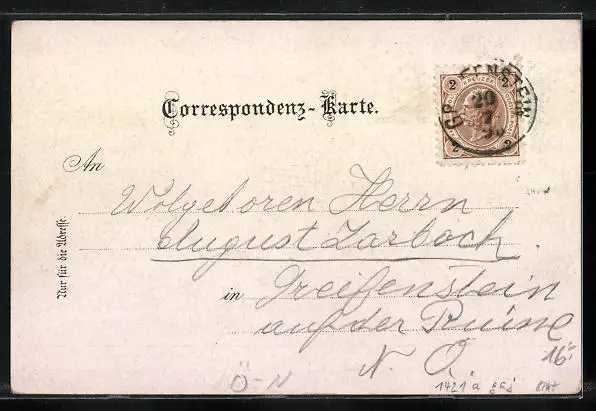 Correspondenz-Karte.
2 2
2 KREUZER 2
20
7
An
Wolgeboren Herrn
August Zarboch
Nur für die Adresse.
in Greifenstein
auf der Ruine
N. Ö
16.-
Ö-N
1421 a